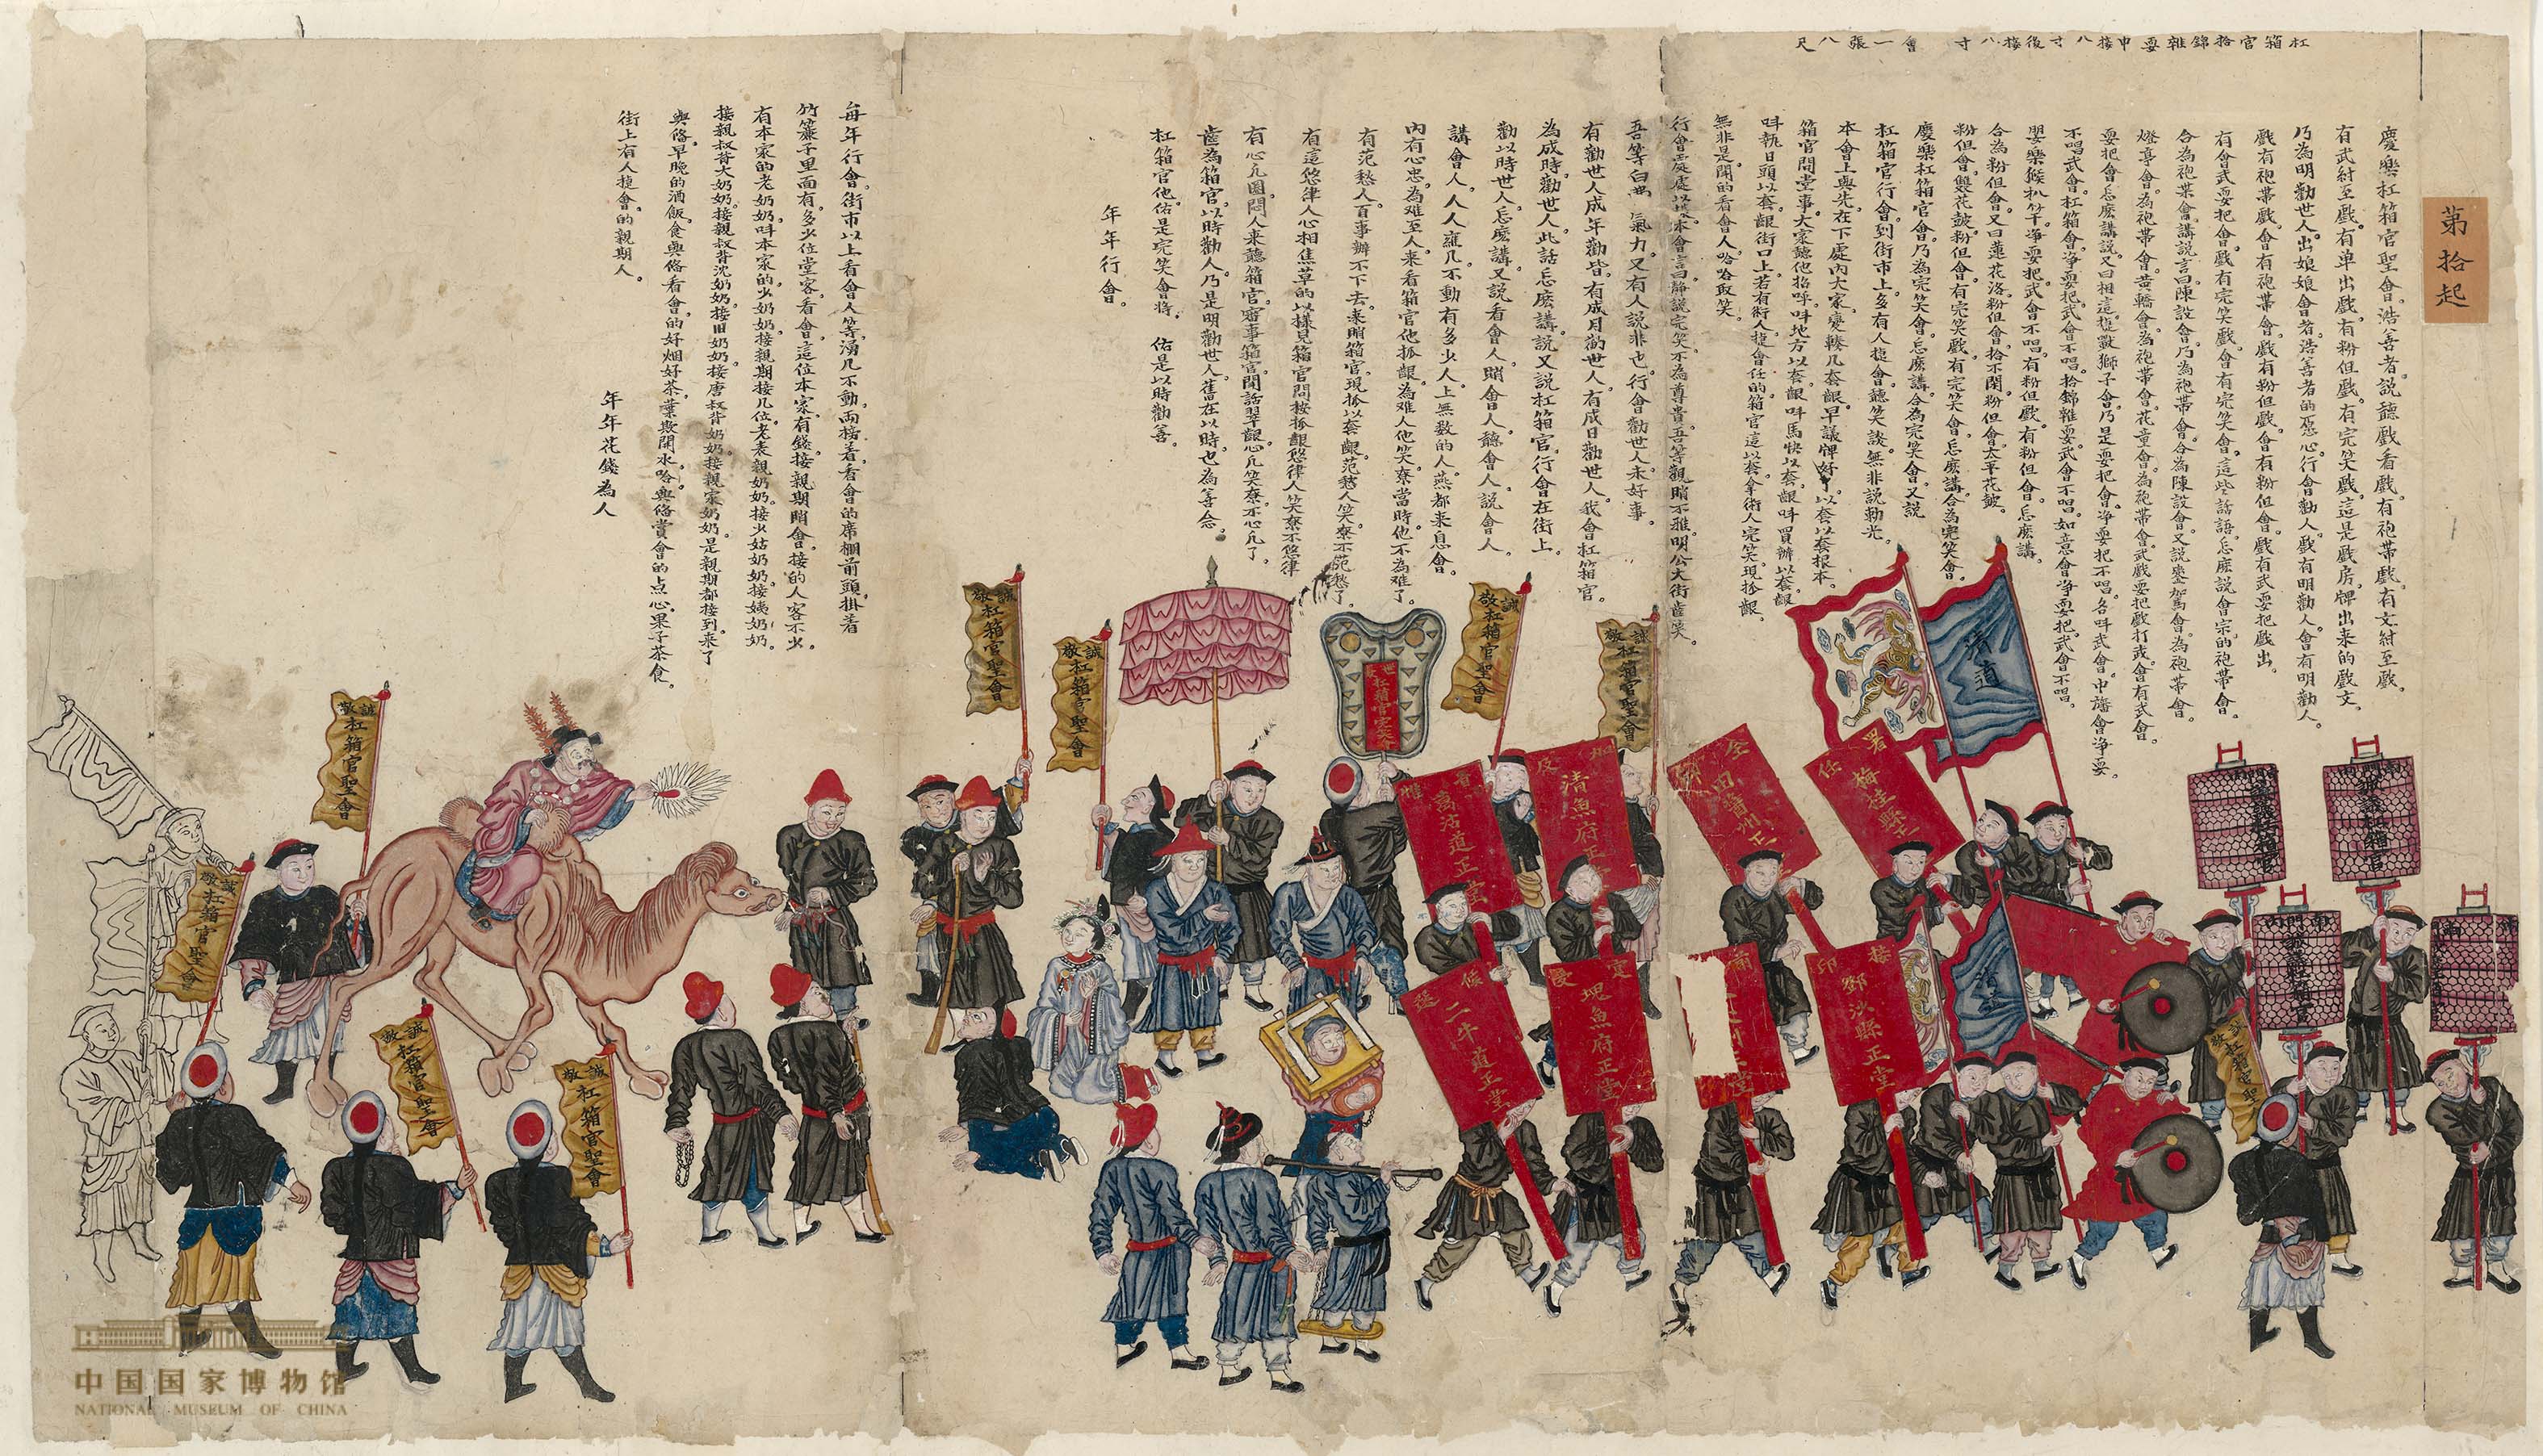 第拾起
杠箱官拾錦雜耍中接八寸後接八寸 會一張八尺
慶樂杠箱官聖會。浩善者。説聽戲看戲。有袍帶戲。有文紂至戲。
有武紂至戲。有单出戲。有粉但戲。有完笑戲。這是戲房。牌出來的戲文。
乃為明勸世人。出娘娘會者。浩善者的恶心。行會勸人。戲有明勸人。會有明勸人。
戲有袍帶戲。會有袍帶會。戲有粉但戲。會有粉但會。戲有武耍把戲出。
有會武耍把會。戲有完笑戲。會有完笑會。這些話語。怎麽説會宗的袍帶會。
合為袍帶會。講説言曰。陳設會。乃為袍帶會。合為陳設會。又説鑾駕會。為袍帶會。
燈亭會。為袍帶會。黄轎會。為袍帶會。花童會。為袍帶會。武戲耍把戲打戎。會有武會。
耍把會。怎麽講説。又曰相這。攏獸獅子會。乃是耍把會。净耍把不唱。名呌武會。中旛會。净耍
不唱武會。杠箱會。净耍把武會不唱。拾錦雜耍。武會不唱。如意會。净耍把武會不唱。
嬰樂猴扒竿。净耍把武會不唱。有粉但戲。有粉但會。怎麽講。
合為粉但會。又曰蓮花洛粉但會。拾不閑。粉但會。太平花皷。
粉但會。雙花皷。粉但會。有完笑戲。有完笑會。怎麽講。合為完笑會。
慶樂杠箱官會。乃為完笑會。怎麽講。合為完笑會。又説
杠箱官行會。到街市上。多有人攏會。聽笑談。無非説勤光。
本會上與先在下處內。大家變轅几套覾。早議牌好了。以套以套根本。
箱官問堂事。大家聽他招呼。呌地方以套覾。呌馬快以套覾。呌買辦以套覾。
呌執日頭以套覾。街口上。若有術人攏會任的。箱官這以套。拿術人完笑。現撦覾。
無非是閙的看會人。哈哈取笑。
行會。處處以塔本會言曰。静説完笑。不為尊貴。吾等觀睄不雅。明公大街齒笑。
吾等白费 氣力。又有人説非也。行會勸世人。未好事。
有勸世人。成年勸皆。有成月勸世人。有成日勸世人。我會杠箱官。
為成時。勸世人。此話怎麽講説。又説杠箱官。行會在街上。
勸以時世人。怎麽講。又説看會人。睄會人。聽會人。説會人。
講會人。人人雍几不動。有多少人。上無数的人。燕都来息會。
內有心忠。為难至人。来看箱官他抓覾。為难人他笑寮。當時他不為难了。
有范愁人。百事辦不下去。来睄箱官。現撦以套覾。范愁人笑寮。不范愁了。
有這悠律人。心相焦草的以樣。見箱官問按撦覾。悠律人笑寮。不悠律
有心几團悶人。来聽箱官。審事箱官。閗話㧱覾。心几笑寮。不心几了。
皆為箱官。以時勸人。乃是明勸世人。舊在以時。也為善念。
杠箱官他。佑是完笑會將。 佑是以時勸善。
年年行會。
每年行會。街市以上。看會人等。湧几不動。両接着。看會的席棚前頭掛着
竹簾子里面。有多少位堂客看會。這位本家。有錢。接親期睄會。接的人客不少。
有本家的老奶奶。呌本家的少奶奶。接親期。接几位。老表親奶奶。接少姑奶奶。接姨奶奶。
接親叔背大奶奶。接親叔背沈奶奶。接旧奶奶。接唐叔背奶奶。接親家奶奶。是親期都接到来了
與俻。早晚的酒飯。食與俻看會的好烟好茶。葉欺開水。哈與俻賞會的点心。果子茶食。
街上有人攏會的親期人。
年年花錢為人
誠敬杠箱官聖會
誠敬杠箱官聖會
誠敬杠箱官聖會
誠敬杠箱官聖會
誠敬杠箱官聖會
誠敬杠箱官聖會
誠敬杠箱官聖會
誠敬杠箱官聖會
誠敬杠箱官聖
杠箱官完笑會
清道
署任梅桂縣正
接印鄧沙縣正堂
全田醬州正
加級清魚府正堂
定塊魚府正堂
萬沽道正堂
候選二牛道正堂
南門內誠議杠箱官
南門內誠議杠箱官
南門內誠議杠箱官
中国国家博物馆
NATIONAL MUSEUM OF CHINA